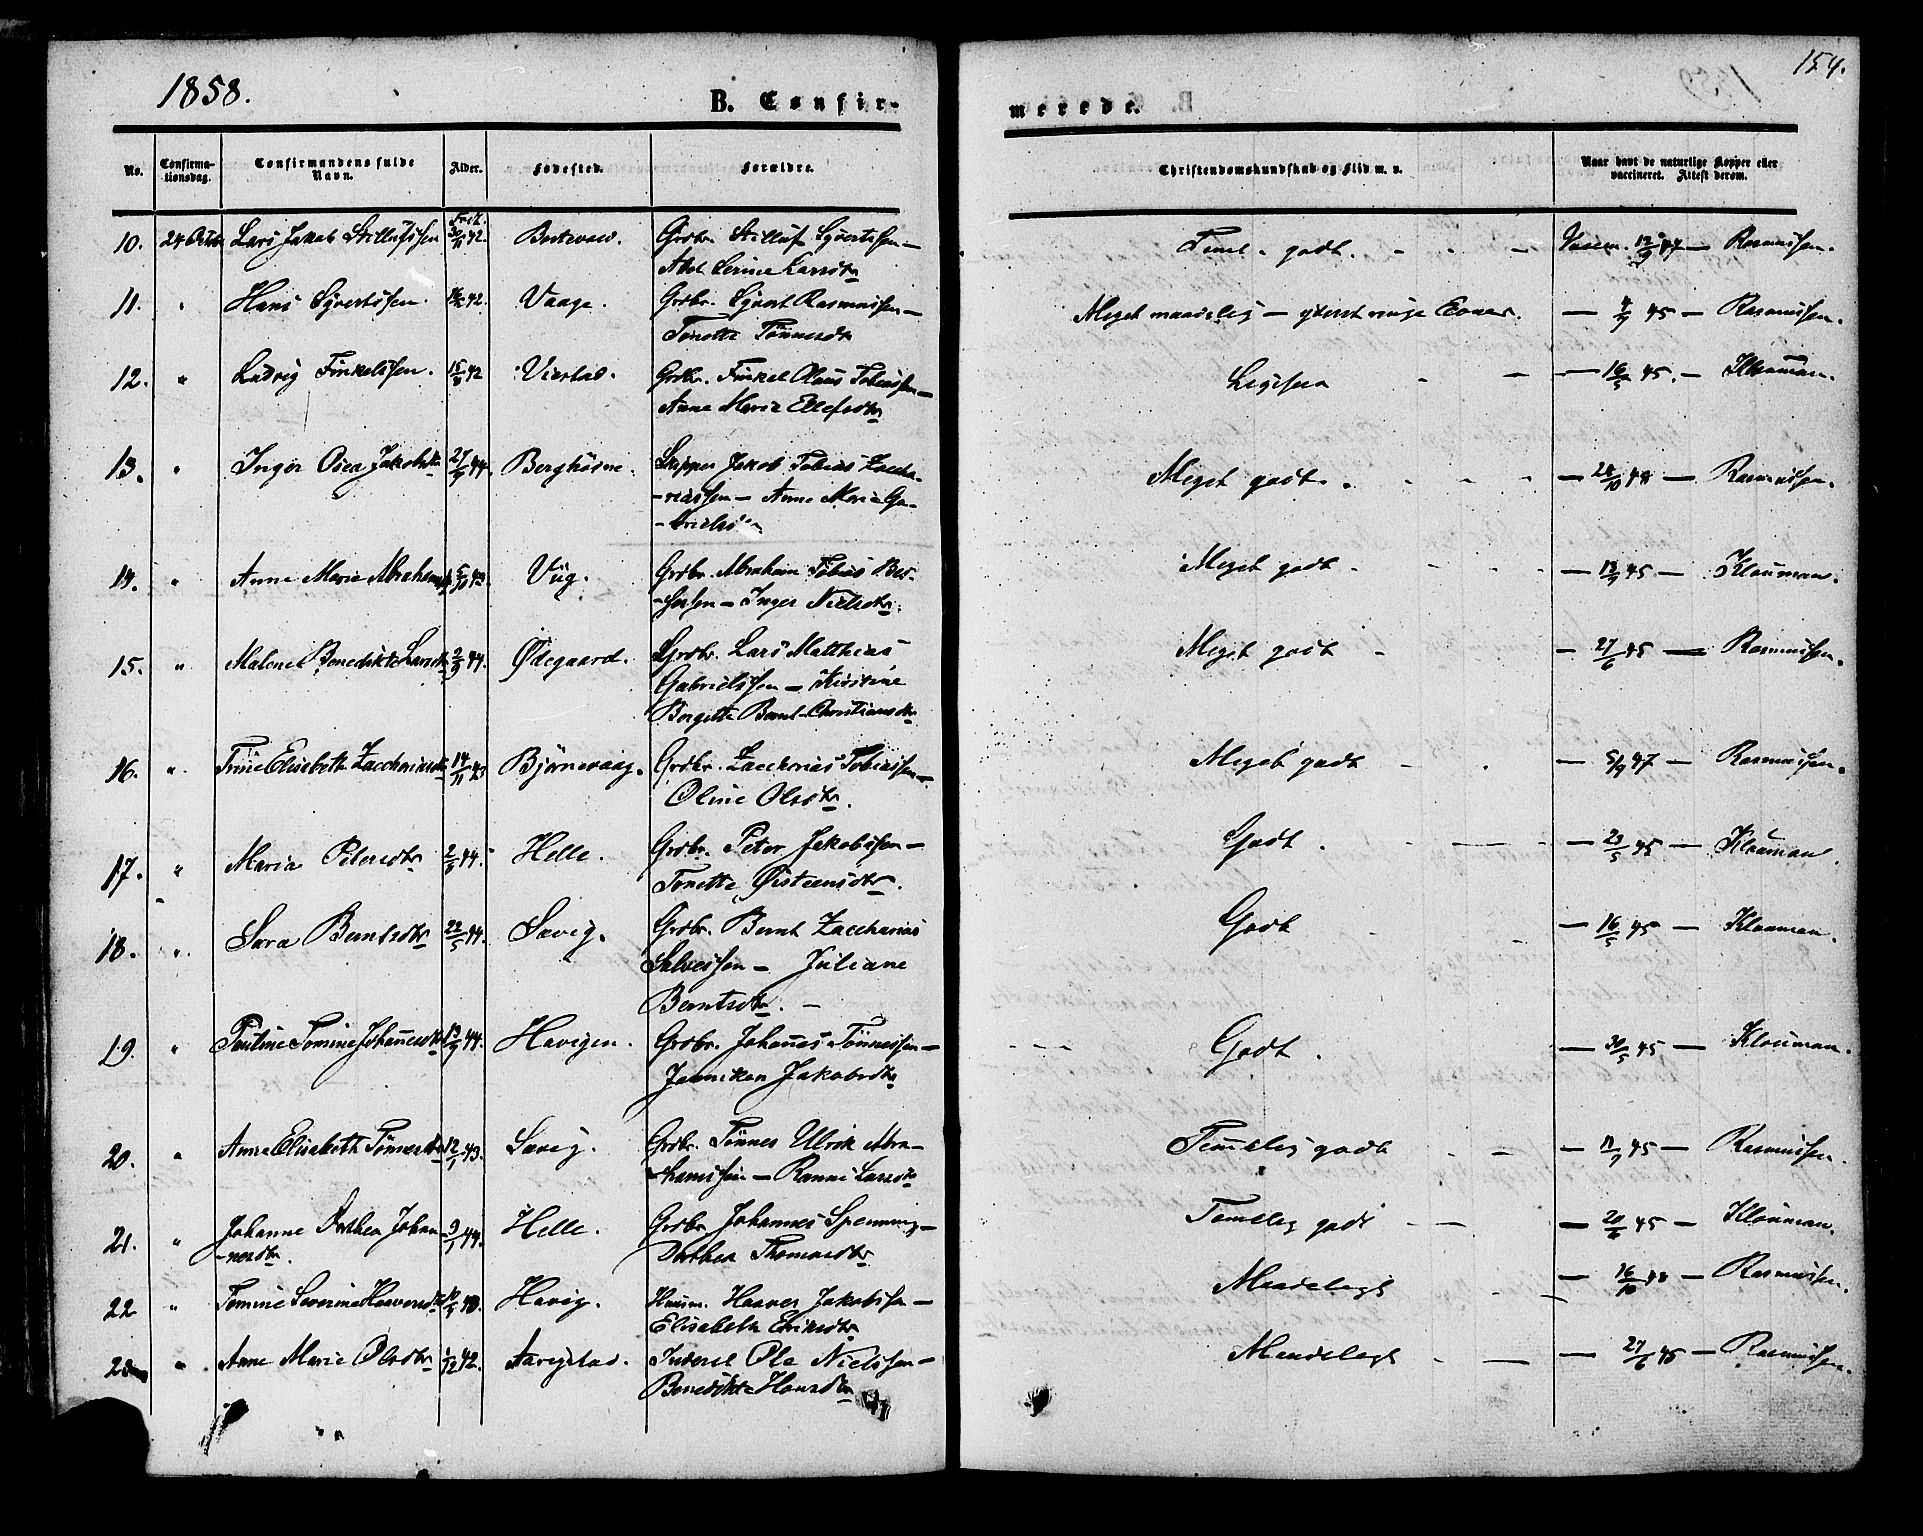 1858.
154.
B. Confir-
merede.
No.
Confirma-
tionsdag.
Confirmandens fulde
Navn.
Alder.
Fødested.
Forældre.
Christendomskundskab og Flid m. v.
Naar havt de naturlige Kopper eller
vaccineret. Attest derom.
10. 24 Octbr Lars Jakob Stillufssen 30/11 42. Gbbr. Stilluf Syvertssen -
Abel Serine Larsdtr
Teml. godt. Vaccin. 12/9 47 - Rasmussen.
11. " Hans Syvertssen. 42. Vaage. Gbbr. Syvert Rasmussen -
Tonette Tønnesdtr
Meget maadelig - yderst ringe Evner. - 4/9 45 - Rasmussen.
12. " Ludvig Finkelssen. 15/8 42 Vierstad. Gbbr. Finkel Olaus Tobiassen -
Anne Marie Ellefsdtr
Ligesaa - 16/5 45. - Klouman.
13. " Inger Jakobsdtr 27/9 44. Berghøine. Skipper Jakob Tobias Zaccha-
-riassen - Anne Marie Ga-
-brielsd
Meget godt. - 24/10 48 - Rasmussen.
14. " Anne Marie Abrahamsd 5/10 43. Viig. Gbbr. Abraham Tobias Bes-
-sesen - Inger Nielsdtr.
Meget godt - 13/9 45 - Klouman.
15. " Malene Benedikte Larsdtr 2/9 44. Ødegaard. Gbbr. Lars Matthias
Gabrielssen - Kirstine
Borgette Bernt-Christiansdtr
Meget godt - 27/6 45 - Rasmussen.
16. " Trine Elisabeth Zacchariasdtr 14/11 43 Bjørnevaag. Gbbr. Zaccharias Tobiassen -
Oline Olsdtr.
Meget godt - 5/9 47 - Rasmussen.
17. " Maria Petersdtr 2/3 44. Helle. Gbbr. Peter Jakobssen -
Tonette Øisteensdtr.
Godt. - 23/5 45 - Klouman.
18. " Sara Berntsdtr 22/5 44. Sævig. Gbbr. Bernt Zaccharias
Salvessen - Juliane
Berntsdtr. -
Godt - 16/5 45 - Klouman.
19. " Pauline Tomine Johannesdtr 13/9 44. Havigen. Gbbr. Johannes Tønnessen -
Janniken Jakobsdtr
Godt. - 30/5 45 - Klouman.
20. " Anne Elisabeth Tønnesdtr 12/1 43. Sævig. Gbbr. Tønnes Ulrik Abra-
-hamssen - Ranni Larsdtr
Temmelig godt - 11/7 45 - Rasmussen.
21. " Johanne Dorthea Johan-
-nesdtr. 9/1 44. Helle. Gbbr. Johannes Spenning -
Dorthea Thomasdtr
Temmelig godt - 20/6 45 - Klouman.
22 " Tomine Severine Haaversdtr Havig. Huusm. Haaver Jakobssen -
Elisabeth Eriksdtr.
Maadeligt - 16/10 48 - Rasmussen.
23 " Anne Marie Olsdtr 1/12 42. Aavigstad. Inderst Ole Nielssen -
Benedikte Hansdtr
Maadeligt - 27/6 45 - Rasmussen.